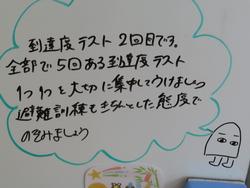 到達度テスト2回目です。
全部で5回ある到達度テスト
1つ1つを大切に集中してうけましょう
避難訓練もきちんとした態度で
のぞみましょう